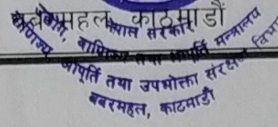 बबरमहल, काठमाडौं
नेपाल सरकार
उद्योग, वाणिज्य तथा आपूर्ति मन्त्रालय
वाणिज्य, आपूर्ति तथा उपभोक्ता संरक्षण विभाग
बबरमहल, काठमाडौं